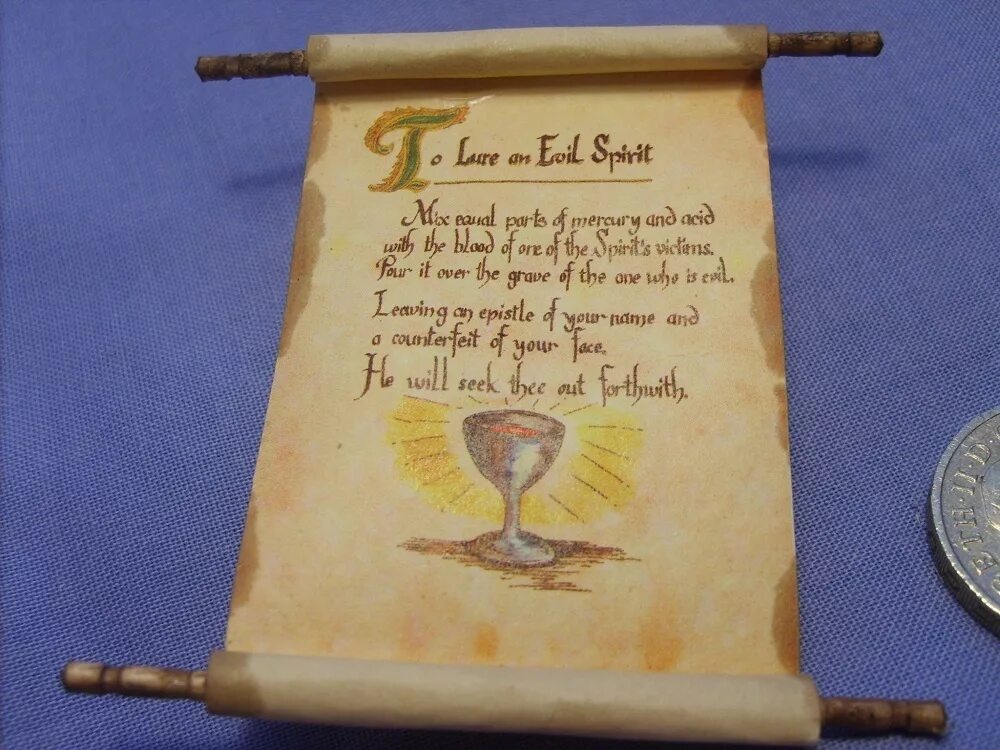 To Lure an Evil Spirit
Mix equal parts of mercury and acid
with the blood of one of the Spirit's victims.
Pour it over the grave of the one who is evil.
Leaving an epistle of your name and
a counterfeit of your face.
He will seek thee out forthwith.
ETH·II·D